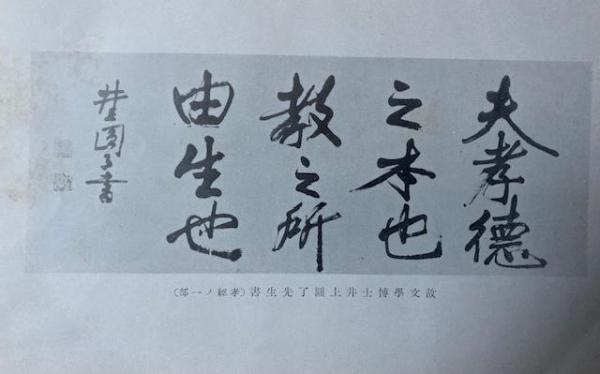 夫孝德
之本也
教之所
由生也
井圓了書
故文學博士井上圓了先生書(孝經ノ一部)